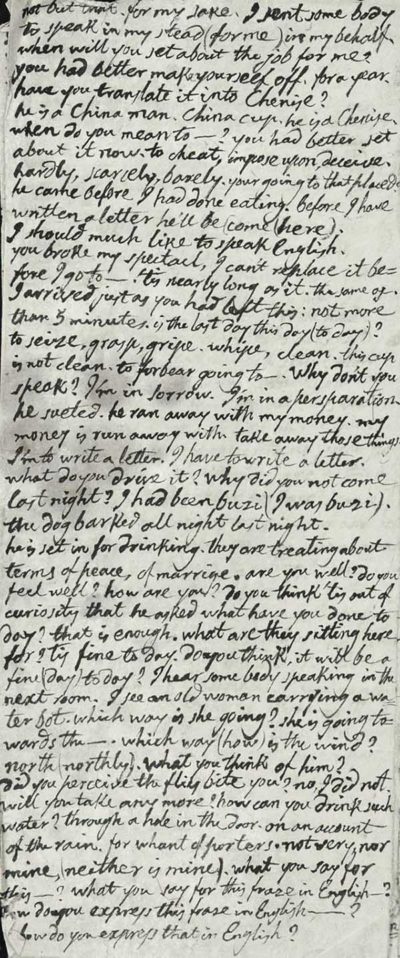 not but that. for my sake. I sent some body
to speak in my stead (for me) in my behalf.
when will you set about the job for me?
you had better make yourself off. for a year.
have you translate it into Chenise?
he is a China man. China cup. he is a Chenise.
when do you mean to — ? you had better set
about it now. to cheat, impose upon, deceive.
hardly, scarcely, barely. your going to that place?
he came before I had done eating. before I have
written a letter he'll be (come (here).
I should much like to speak English.
you broke my spectacl, I can't replace it be=
fore I go to —. 'tis nearly long as it. the same as.
I arrived just as you had left this: not more
than 5 minutes. is the last day this day (to day)?
to seize, grasp, gripe. whipe, clean. this cup
is not clean. to forbear going to —. Why don't you
speak? I'm in sorrow. I'm in a persparation.
he sueted. he ran away with my money. my
money is run away with. take away those things.
I'm to write a letter. I have to write a letter.
what do you drive it? why did you not come
last night? I had been buzi (I was buzi).
the dog barked all night last night.
he is set in for drinking. they are treating about
terms of peace, of marrige. are you well? do you
feel well? how are you? do you think 'tis out of
curiosity that he asked what have you done to
day? that is enough. what are they sitting here
for? tis fine to day. do you think, it will be a
fine (day) to day? I hear some body speaking in the
next room. I see an old woman carrying a wa
ter pot. which way is she going? she is going to=
wards the —. which way (how) is the wind?
north (northly). what you think of him?
did you perceive the flies bite you? no, I did not.
will you take any more? how can you drink such
water? through a hole in the door. on an account
of the rain. for whant of porters. not very, nor
mine (neither is mine). what you say for
this —? what you say for this fraze in English —?
how do you express this fraze in English —— ?
how do you express that in English?